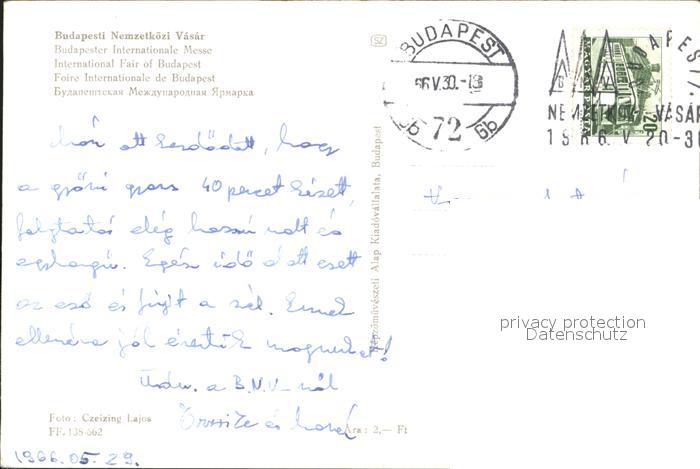 Budapesti Nemzetközi Vásár
Budapester Internationale Messe
International Fair of Budapest
Foire Internationale de Budapest
Будапештская Международная Ярмарка
SZ
BUDAPEST
66 V.30.-18
72
BUDAPEST
NEMZETKÖZI VÁSÁR
1966. V. 20-30
MAGYAR
20
ott kezdődött, hogy
a győri gyors 40 percet késett,
folytatás elég hosszú volt és
egyhangú. Egész idő alatt esett
az eső és fújt a szél. Ennek
ellenére jól éreztük magunkat!
Üdv. a B.N.V-ről
és
Képzőművészeti Alap Kiadóvállalata, Budapest
privacy protection
Datenschutz
Foto : Czeizing Lajos
FF. 138-562
Ára : 2,— Ft
1966.05.29.